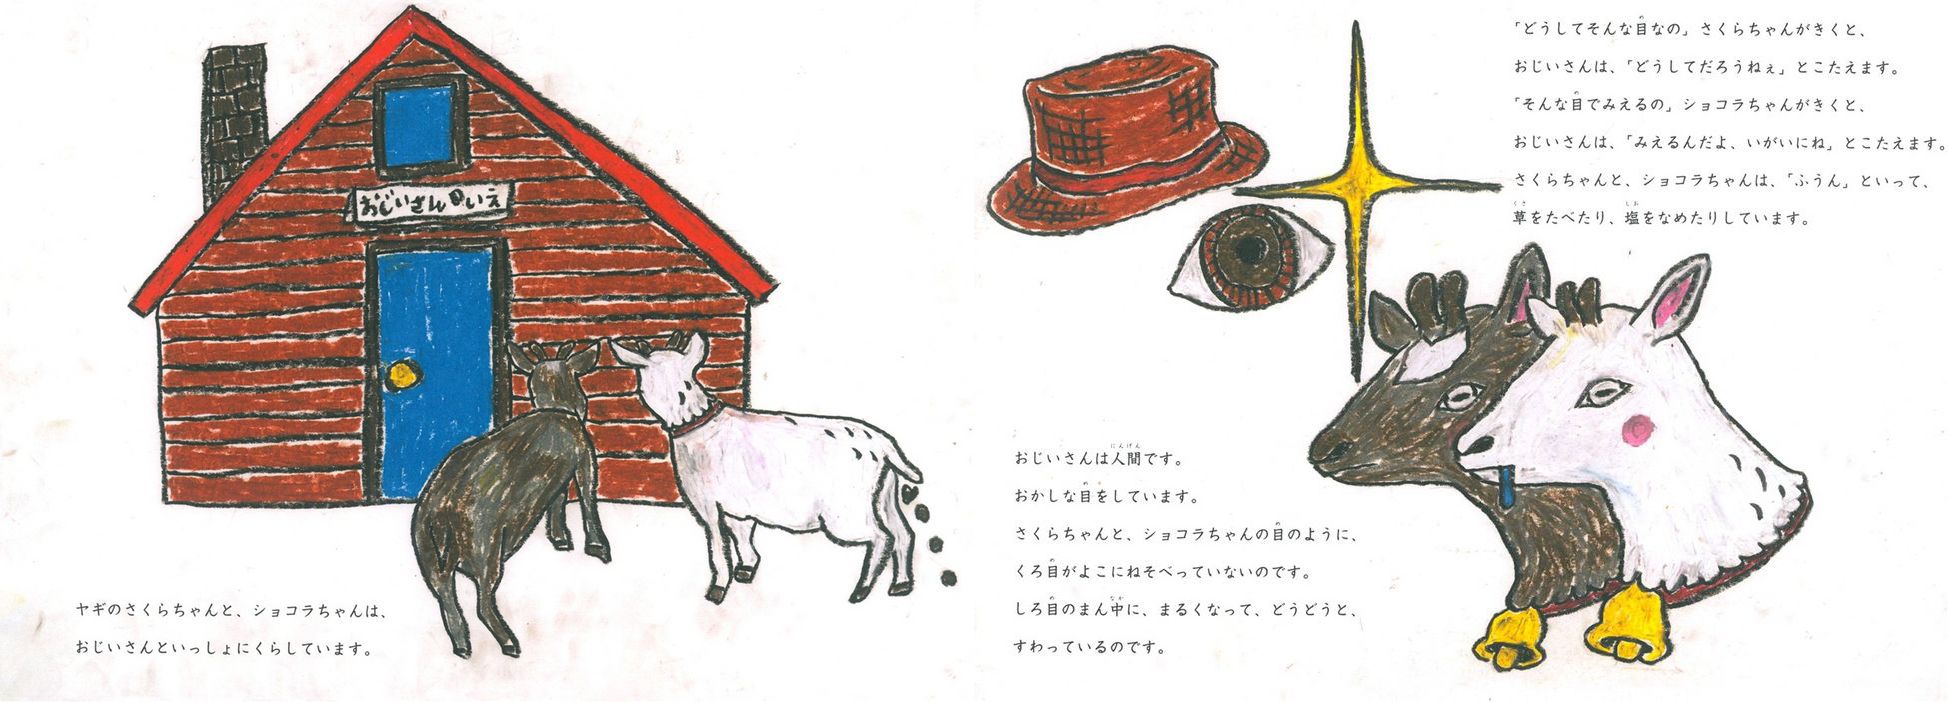 おじいさんのいえ
ヤギのさくらちゃんと、ショコラちゃんは、
おじいさんといっしょにくらしています。
おじいさんは人間です。
おかしな目をしています。
さくらちゃんと、ショコラちゃんの目のように、
くろ目がよこにねそべっていないのです。
しろ目のまん中に、まるくなって、どうどうと、
すわっているのです。
「どうしてそんな目なの」さくらちゃんがきくと、
おじいさんは、「どうしてだろうねぇ」とこたえます。
「そんな目でみえるの」ショコラちゃんがきくと、
おじいさんは、「みえるんだよ、いがいにね」とこたえます。
さくらちゃんと、ショコラちゃんは、「ふうん」といって、
草をたべたり、塩をなめたりしています。